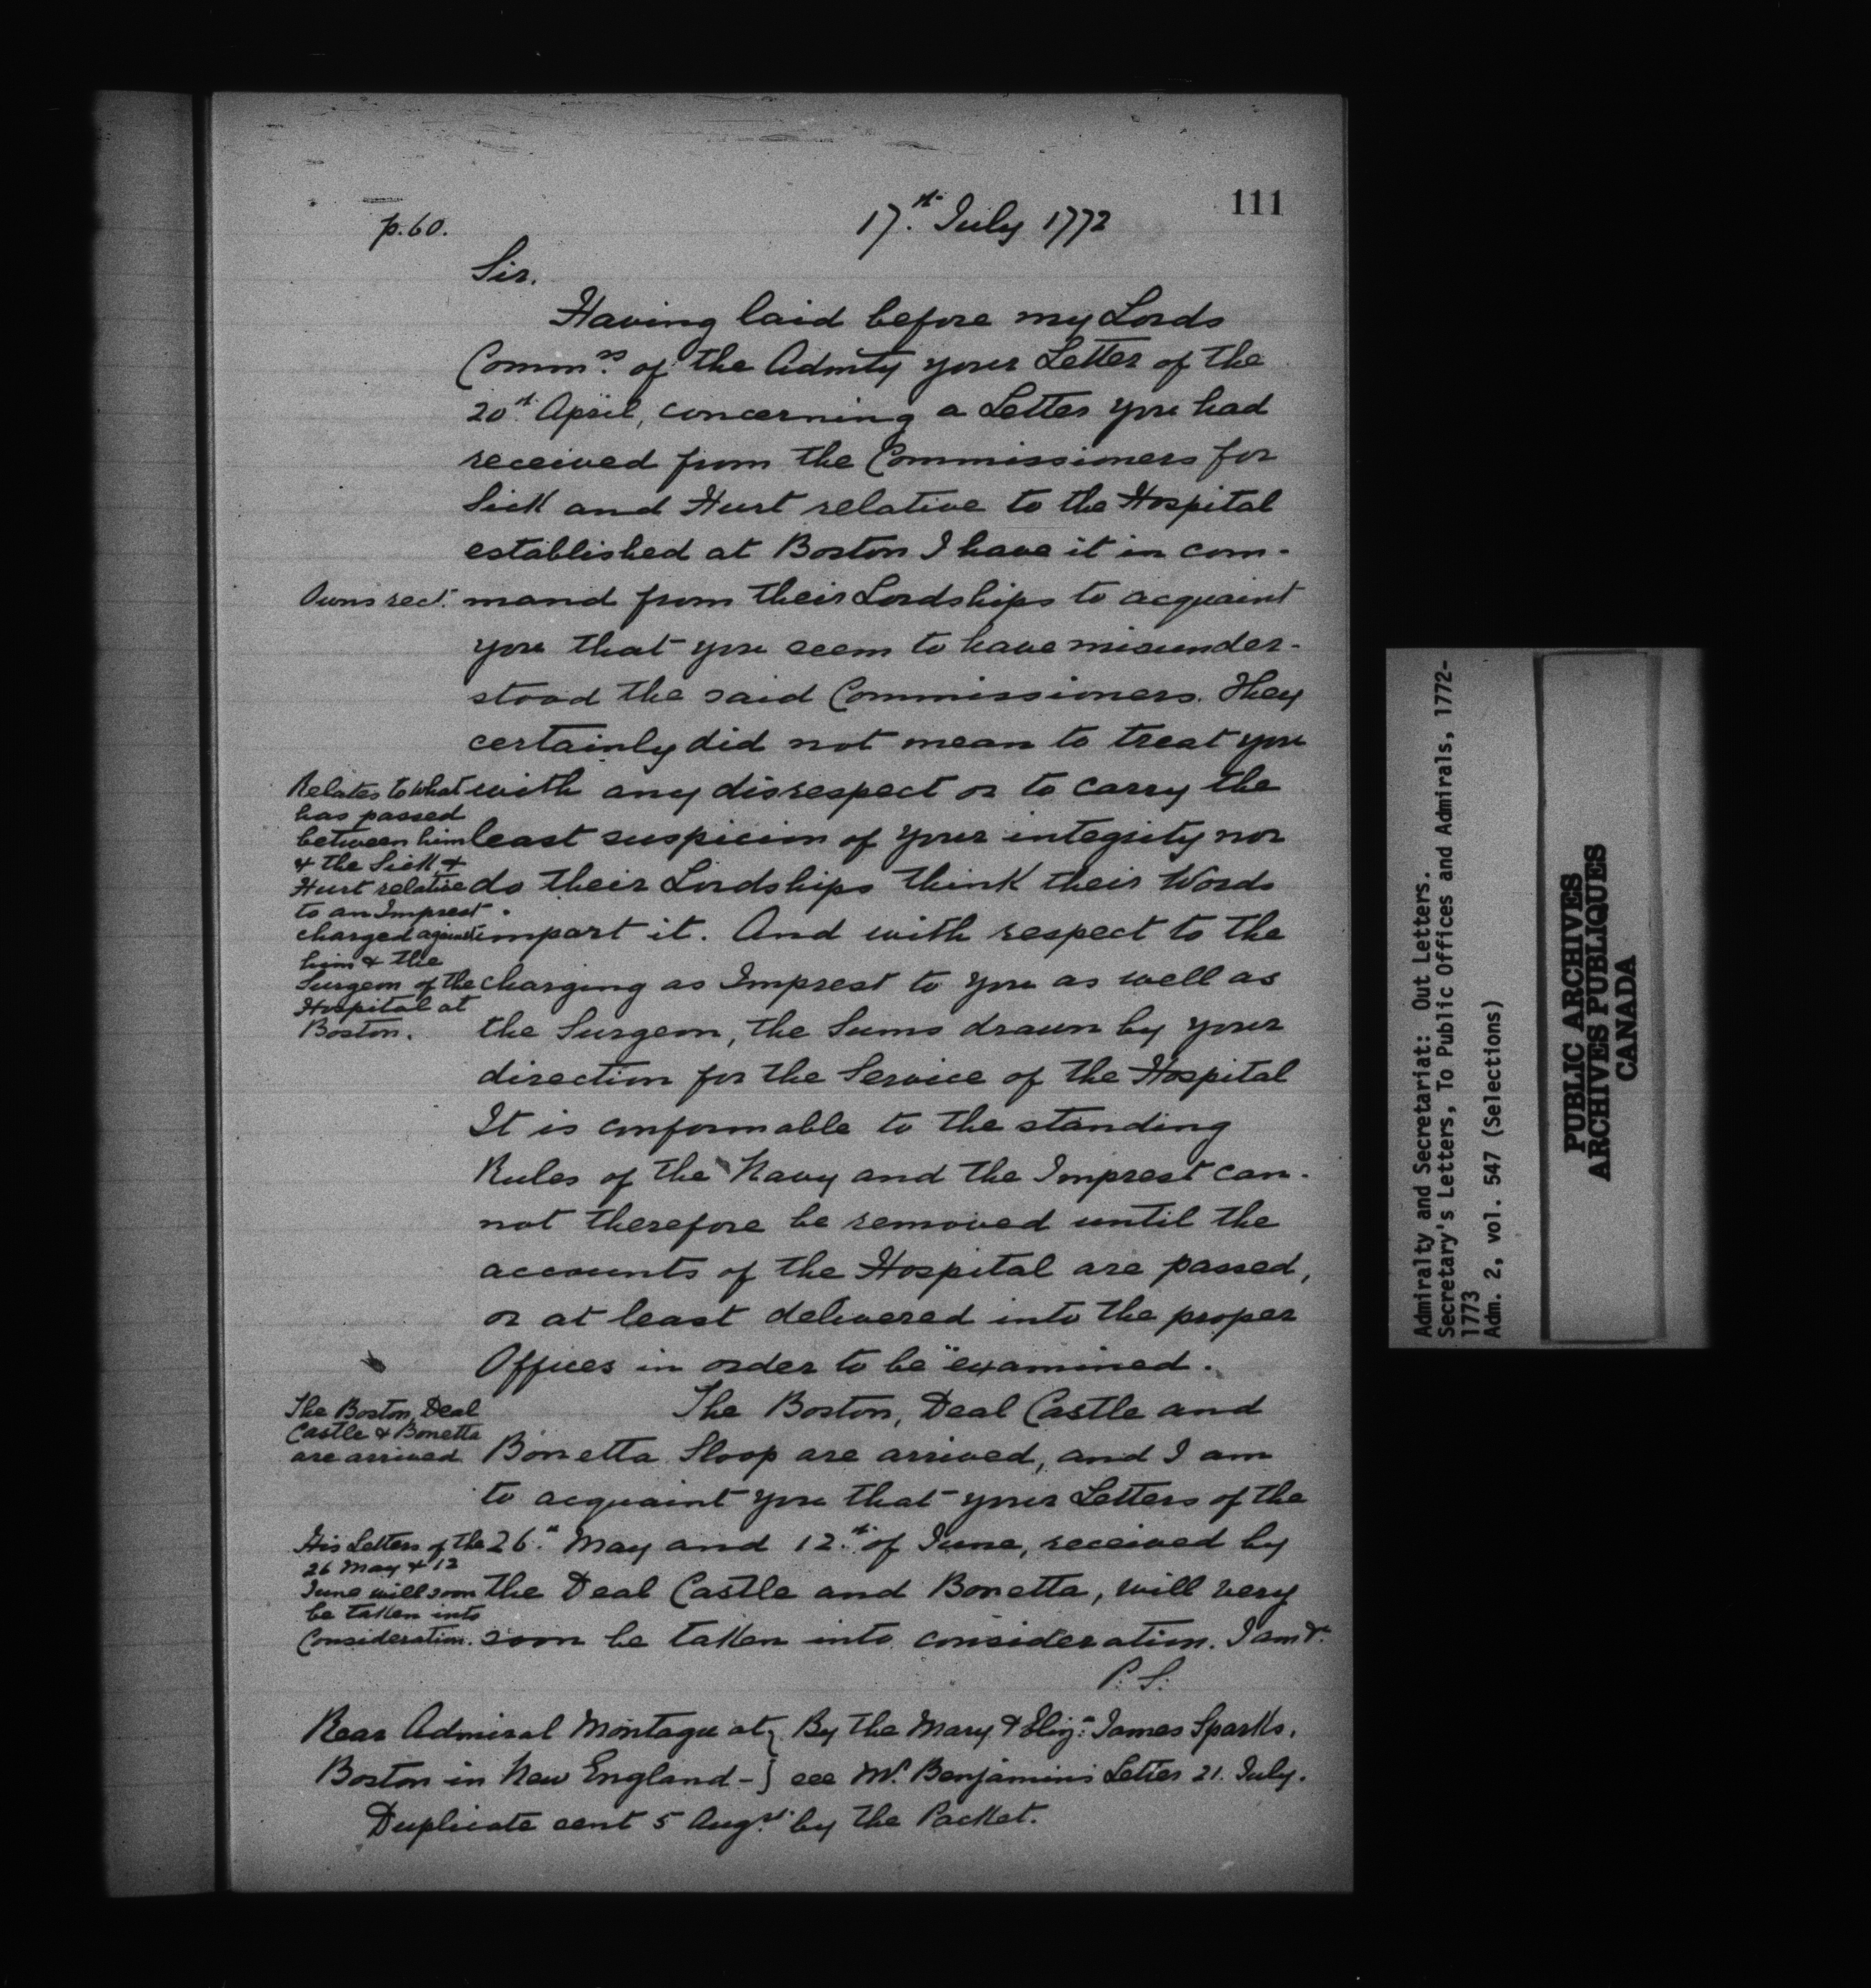 111
p.60.
17th July 1772
Sir.
Having laid before my Lords
Commrs. of the Admty your Letter of the
20th April, concerning a Letter you had
received from the Commissioners for
Sick and Hurt relative to the Hospital
established at Boston I have it in com-
mand from their Lordships to acquaint
you that you seem to have misunder-
stood the said Commissioners. They
certainly did not mean to treat you
with any disrespect or to carry the
least suspicion of your integrity nor
do their Lordships think their Words
import it. And with respect to the
charging as Imprest to you as well as
the Surgeon, the Sums drawn by your
direction for the Service of the Hospital
It is conformable to the standing
Rules of the Navy and the Imprest can-
not therefore be removed until the
accounts of the Hospital are passed,
or at least delivered into the proper
Offices in order to be examined.
The Boston, Deal Castle and
Bonetta Sloop are arrived, and I am
to acquaint you that your Letters of the
26th May and 12th of June, received by
the Deal Castle and Bonetta, will very
soon be taken into consideration. I am &c.
P. S.
Owns rect.
Relates to what
has passed
between him
& the Sick &
Hurt relative
to an Imprest
charged against
him & the
Surgeon of the
Hospital at
Boston.
The Boston, Deal
Castle & Bonetta
are arrived
His Letters of the
26 May & 12
June will soon
be taken into
Consideration.
Rear Admiral Montagu at } By the Mary & Eliz: James Sparks.
Boston in New England - } see Mr. Benjamin's Letter 21. July.
Duplicate sent 5 Augst. by the Packet.
Admiralty and Secretariat: Out Letters.
Secretary's Letters, To Public Offices and Admirals, 1772-
1773
Adm. 2, vol. 547 (Selections)
PUBLIC ARCHIVES
ARCHIVES PUBLIQUES
CANADA